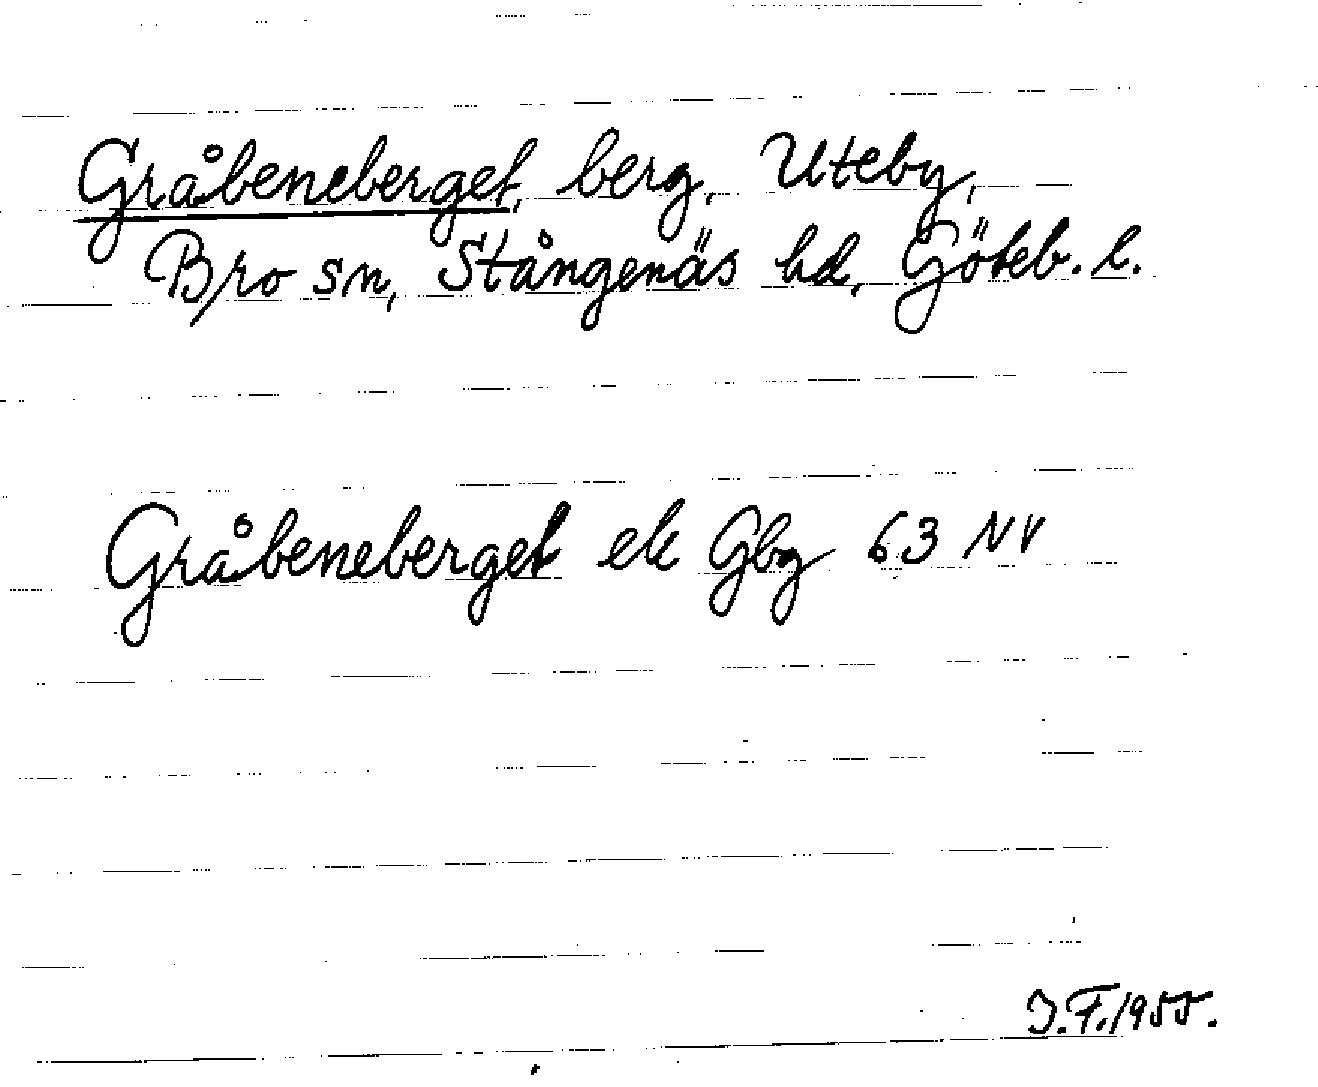 Gråbeneberget, berg, Uteby,
Bro sn, Stångenäs hd, Göteb. l.
Gråbeneberget ek Gbg 63 NV
J.F. 1955.